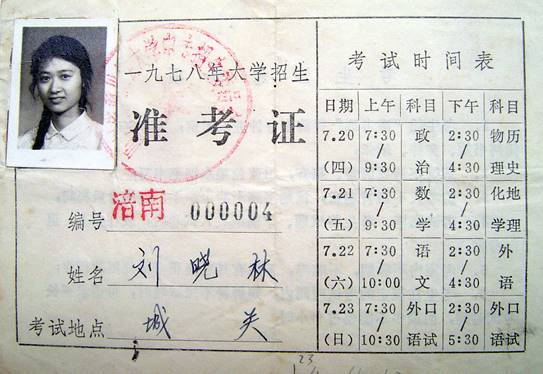 一九七八年大学招生
准考证
编号 涪南 000004
姓名 刘晓林
考试地点 城关
考试时间表
日期 上午 科目 下午 科目
7.20 7:30 政 2:30 物历
(四) / 9:30 治 / 4:30 理史
7.21 7:30 数 2:30 化地
(五) / 9:30 学 / 4:30 学理
7.22 7:30 语 2:30 外
(六) / 10:00 文 / 4:30 语
7.23 7:30 外口 2:30 外口
(日) / 10:30 语试 / 5:30 语试
23